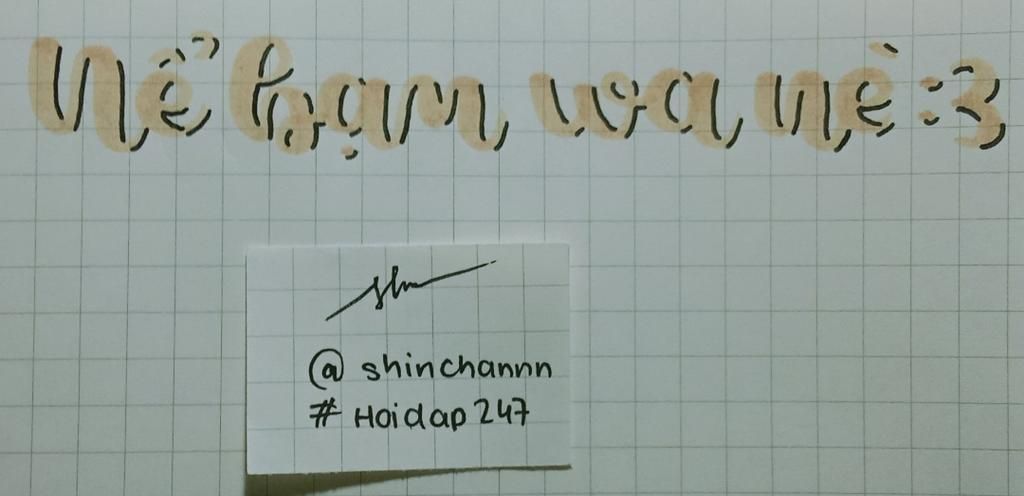 Nể bạn wa nè :3
shn
@ shinchannn
# Hoidap 247